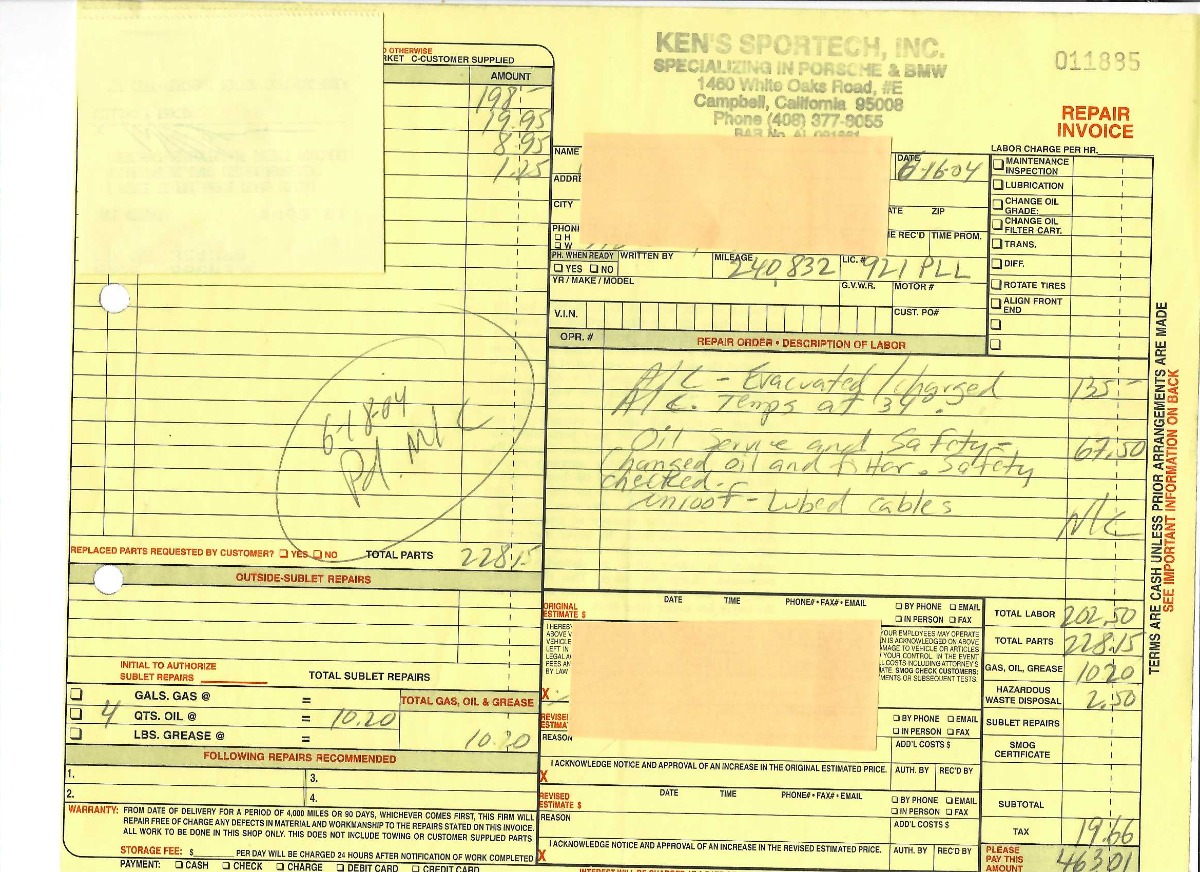 O OTHERWISE
RKET C-CUSTOMER SUPPLIED
AMOUNT
198-
19.95
8.95
1.25
KEN'S SPORTECH, INC.
SPECIALIZING IN PORSCHE & BMW
1460 White Oaks Road, #E
Campbell, California 95008
Phone (408) 377-8055
011885
REPAIR
INVOICE
NAME
DATE 6-16-04
ADDRE
CITY
ATE ZIP
PHON
H
W
E REC'D TIME PROM.
PH. WHEN READY
YES NO
WRITTEN BY
MILEAGE 240,832
LIC.# 921 PLL
YR / MAKE / MODEL
G.V.W.R. MOTOR #
V.I.N.
CUST. PO#
LABOR CHARGE PER HR.
MAINTENANCE INSPECTION
LUBRICATION
CHANGE OIL GRADE:
CHANGE OIL FILTER CART.
TRANS.
DIFF.
ROTATE TIRES
ALIGN FRONT END
OPR. # REPAIR ORDER • DESCRIPTION OF LABOR
A/C - Evacuated/charged 135-
A/C. Temps at 34°.
Oil Service and Safety - 67.50
Changed oil and filter. Safety
checked.
unroof - Lubed cables
N/C
6-18-04
Pd. M/C
REPLACED PARTS REQUESTED BY CUSTOMER? YES NO TOTAL PARTS 228.15
OUTSIDE-SUBLET REPAIRS
INITIAL TO AUTHORIZE
SUBLET REPAIRS
TOTAL SUBLET REPAIRS
GALS. GAS @ = TOTAL GAS, OIL & GREASE
4 QTS. OIL @ = 10.20
LBS. GREASE @ = 10.20
FOLLOWING REPAIRS RECOMMENDED
1. 3.
2. 4.
WARRANTY: FROM DATE OF DELIVERY FOR A PERIOD OF 4,000 MILES OR 90 DAYS, WHICHEVER COMES FIRST, THIS FIRM WILL
REPAIR FREE OF CHARGE ANY DEFECTS IN MATERIAL AND WORKMANSHIP TO THE REPAIRS STATED ON THIS INVOICE.
ALL WORK TO BE DONE IN THIS SHOP ONLY. THIS DOES NOT INCLUDE TOWING OR CUSTOMER SUPPLIED PARTS
STORAGE FEE: $ PER DAY WILL BE CHARGED 24 HOURS AFTER NOTIFICATION OF WORK COMPLETED
PAYMENT: CASH CHECK CHARGE DEBIT CARD CREDIT CARD
ORIGINAL ESTIMATE $ DATE TIME PHONE# • FAX# • EMAIL BY PHONE EMAIL
IN PERSON FAX
I HEREBY
ABOVE
VEHICLE
LEFT IN
LEGAL
FEES AN
BY LAW
YOUR EMPLOYEES MAY OPERATE
N IS ACKNOWLEDGED ON ABOVE
AMAGE TO VEHICLE OR ARTICLES
YOUR CONTROL. IN THE EVENT
COSTS INCLUDING ATTORNEY'S
TE. SMOG CHECK CUSTOMERS:
MENTS OR SUBSEQUENT TESTS.
X
REVISED
ESTIMA
BY PHONE EMAIL
IN PERSON FAX
REASON
ADD'L COSTS $
I ACKNOWLEDGE NOTICE AND APPROVAL OF AN INCREASE IN THE ORIGINAL ESTIMATED PRICE. AUTH. BY REC'D BY
X
REVISED ESTIMATE $ DATE TIME PHONE# • FAX# • EMAIL BY PHONE EMAIL
IN PERSON FAX
REASON
ADD'L COSTS $
I ACKNOWLEDGE NOTICE AND APPROVAL OF AN INCREASE IN THE REVISED ESTIMATED PRICE. AUTH. BY REC'D BY
X
TOTAL LABOR 202.50
TOTAL PARTS 228.15
GAS, OIL, GREASE 10.20
HAZARDOUS WASTE DISPOSAL 2.50
SUBLET REPAIRS
SMOG CERTIFICATE
SUBTOTAL
TAX 19.66
PLEASE PAY THIS AMOUNT 463.01
TERMS ARE CASH UNLESS PRIOR ARRANGEMENTS ARE MADE
SEE IMPORTANT INFORMATION ON BACK